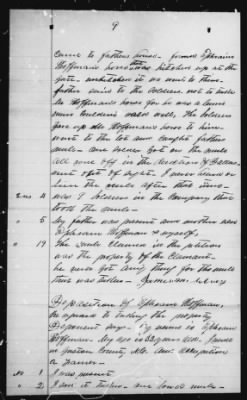 9
came to fathers house - found Ephraim
Hoffman's horse was hitched up at the
gate - unhitched it so went to
father said to the soldiers not to take
Mr Hoffmans horse for he was a
man couldn't walk well, the soldiers
gave up Mr Hoffmans horse to him
went to the lot and caught fathers
mule - one soldier got on the mule
all rode off in the direction of
out of sight. I never heard or
seen the mule after that time
Ques 4 was soldiers in the company that
took the mule -
" 5 My father was present and mother and
Ephraim Hoffman & myself.
" 19 The mule claimed in the petition
was the property of the claimant -
he never got any thing for the mule
that was taken -
Deposition of Ephraim Hoffman,
in regard to taking the property
Deponent says - My name is Ephraim
Hoffman. My age is 53 years old. I reside
in Gaston County, N.C. and occupation
a farmer -
No 1 I was present
" 2 I saw it taken - one mule -